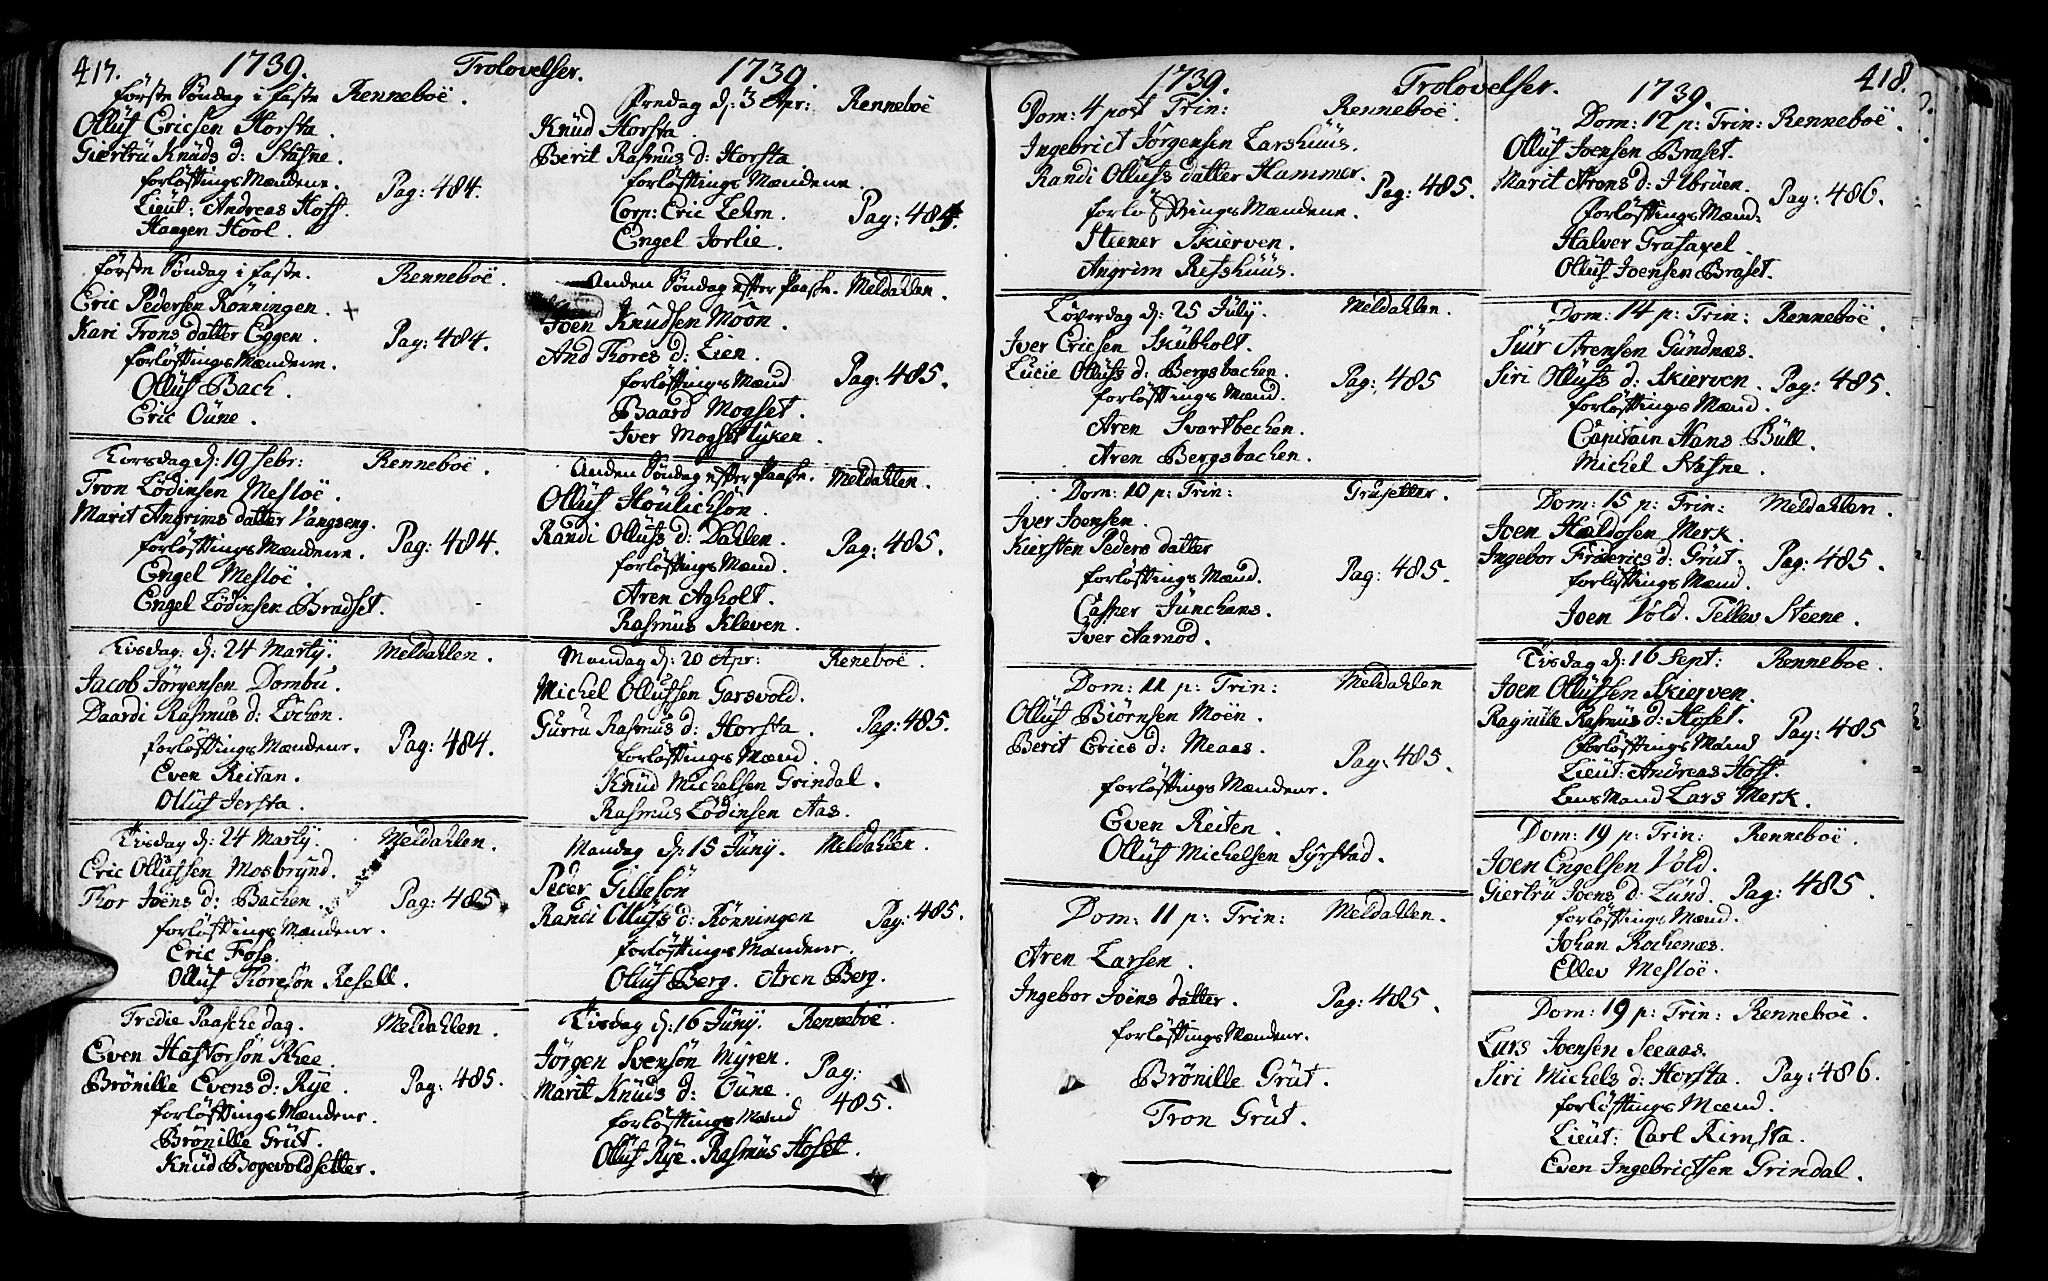 417. 1739. Trolovelser. 1739.
første Søndag i faste Renneboe.
Olluf Ericsen Horsta.
Giertru Knuds d: Stafne.
forløftings Mændene. Pag: 484.
Lieut: Andreas Hoff.
Haagen Hool.
første Søndag i faste. Renneboe.
Eric Pedersen Rønningen. +
Kari Trons datter Eggen. Pag: 484.
forløftings Mændene.
Olluf Bach.
Eric Oune.
Torsdag d: 19 febr: Renneboe.
Tron Lødinsen Mesloe.
Marit Angrims datter Vangseng.
forløftings Mændene. Pag: 484.
Engel Mesloe.
Engel Lødinsen Bradset.
Tisdag d: 24 Marty. Meldahlen.
Jacob Jørgensen Dombu.
Daardi Rasmus d: Løchen.
forløftings Mændene. Pag: 484.
Even Reitan.
Olluf Jersta.
Tisdag d: 24 Marty. Meldahlen.
Eric Ollufsen Mosbrynd.
Thor Joens d: Bachen. Pag: 485
forløftings Mændene.
Eric Foss.
Olluf Thoresøn Resell.
Tredie Paasche dag. Meldahlen.
Even Hastorsøn Rhee.
Brønille Evens d: Rye. Pag: 485.
forløftings Mændene.
Brønille Grut.
Knud Bogevoldsetter.
Fredag d: 3 Apr: Renneboe
Knud Horsta.
Berit Rasmus d: Horsta.
forløftings Mændene.
Corp: Eric Lehn. Pag: 484.
Engel Jorlie.
Anden Søndag efter Paaske. Meldahlen.
Joen Knudsen Moon.
And Thores d: Lien.
forløftings Mænd Pag: 485.
Baard Mogset.
Iver Mogsetlyken.
Anden Søndag efter Paaske. Meldahlen.
Olluf Houlichsøn.
Randi Ollufs d: Dahlen. Pag: 485.
forløftings Mænd.
Aren Agholt.
Rasmus Kleven.
Mandag d: 20 Apr: Reneboe.
Michel Ollufsen Garsvold.
Gurru Rasmus d: Horsta. Pag: 485.
forløftings Mænd.
Knud Michelsen Grindal.
Rasmus Lødinsen Aas.
Mandag d: 15 Juny. Meldahlen.
Peder Gillesøn
Randi Ollufs d: Rønningen Pag: 485.
forløftings Mændene
Olluf Berg. Aren Berg.
Tisdag d: 16 Juny. Renneboe.
Jørgen Svensøn Myren. Pag:
Marit Knuds d: Oune. 485.
forløftings Mænd
Olluf Rye. Rasmus Hoset.
1739. Trolovelser. 1739. 418.
Dom: 4 post Trin: Renneboe.
Ingebrict Jørgensen Larshuus.
Randi Ollufs datter Hammer. Pag: 485.
forløftings Mændene.
Steener Skierven.
Angrim Refshuus.
Løverdag d: 25 July. Meldahlen.
Iver Ericsen Skubholt.
Lucie Ollufs d: Bergsbachen. Pag: 485
forløftings Mænd.
Aren Svartbechen.
Aren Bergsbachen.
Dom: 10 p: Trin: Grusetter.
Iver Joensen.
Kiersten Peders datter
forløftings Mænd. Pag: 485.
Casper Junchans.
Iver Aamod.
Dom: 11 p: Trin: Meldahlen
Olluf Biørnsen Moen.
Berit Erics d: Meaas. Pag: 485.
forløftings Mændene.
Even Reiten.
Olluf Michelsen Syrstad.
Dom: 11 p: Trin: Meldahlen.
Aren Larsen.
Ingebor Joens datter. Pag: 485.
forløftings Mændene.
Brønille Grut.
Tron Grut.
Dom: 12 p: Trin: Renneboe.
Olluf Joensen Braset.
Marit Arons d: Ilbruen. Pag: 486.
forløftings Mænd:
Halver Grafaxel.
Olluf Joensen Braset.
Dom: 14 p: Trin: Renneboe.
Suur Arensen Gundnæs.
Siri Ollufs d: Skierven. Pag: 485.
forløftings Mænd.
Capitain Hans Bull.
Michel Stafne.
Dom: 15 p: Trin: Meldahlen.
Joen Haldosen Merk.
Ingebor Friderics d: Grut. Pag: 485.
forløftings Mænd.
Joen Vold. Tellev Steene.
Tisdag d: 16 Sept: Renneboe.
Joen Ollufsen Skierven.
Ragnille Rasmus d: Hoset. Pag: 485
forløftings Mænd
Lieut: Andreas Hoff.
Lensmand Lars Merk.
Dom: 19 p: Trin: Renneboe.
Joen Engelsen Vold.
Giertru Joens d: Lund. Pag: 485.
forløftings Mænd.
Johan Rochenæs.
Ellev Mesloe.
Dom: 19 p: Trin: Renneboe.
Lars Joensen Seeaas.
Siri Michels d: Horsta. Pag: 486.
forløftings Mænd.
Lieut: Carl Rimsta.
Even Ingebrictsen Grindal.